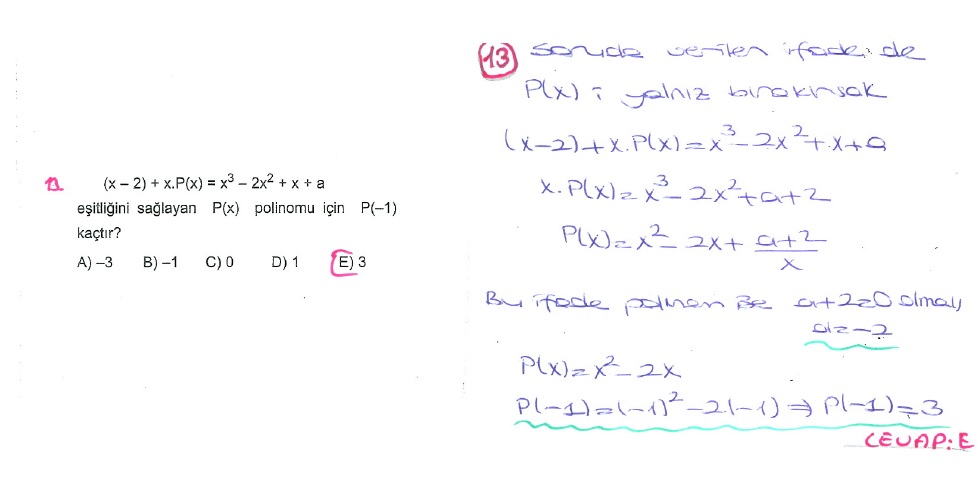 (x – 2) + x.P(x) = x³ – 2x² + x + a
eşitliğini sağlayan P(x) polinomu için P(–1)
kaçtır?
A) –3 B) –1 C) 0 D) 1 E) 3
13 Soruda verilen ifade de
P(x) i yalnız bırakırsak
(x-2)+x.P(x)=x³-2x²+x+a
x.P(x)=x³-2x²+a+2
P(x)=x²-2x+\frac{a+2}{x}
Bu ifade polinom ise a+2=0 olmalı
a=-2
P(x)=x²-2x
P(-1)=(-1)²-2.(-1)⇒P(-1)=3
CEVAP:E